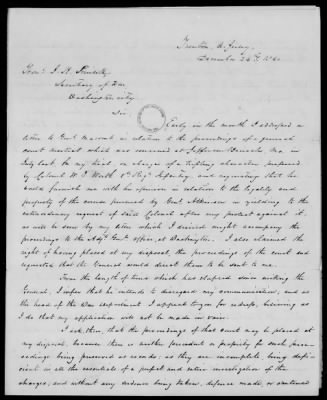 Trenton, N. Jersey,
December 24th, 1840
Honl. J. R. Poinsett,
Secretary of War,
Washington city,
Sir,
Early in the month I addressed a
letter to Genl. Macomb in relation to the proceedings of a general
court martial which was convened at Jefferson Barracks Mo. in
July last for my trial, on charges of a trifling character preferred
by Colonel W. J. Worth 8th Regt. Infantry, and requesting that he
would furnish me with his opinion in relation to the legality and
propriety of the course pursued by Genl. Atkinson in yielding to the
extraordinary request of said Colonel after my protest against it,
as will be seen by my letter which I desired might accompany the
proceedings to the Adjt. Genl's office, at Washington. I also claimed the
right of having placed at my disposal, the proceedings of the court and
requested that the General would direct them to be sent to me.
From the length of time which has elapsed since writing the
General, I infer that he intends to disregard my communication, and as
the head of the War department I appeal to you for redress, believing as
I do that my application will not be made in vain.
I ask, then, that the proceedings of that court may be placed at
my disposal, because there is neither precedent or propriety for such procee-
dings being preserved as records; as they are incomplete, being defi-
cient in all the essentials of a perfect and entire investigation of the
charges, and without any evidence being taken, defence made, or sentence